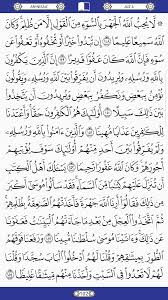 AN-NISAA' JUZ 6
۞ لَّا يُحِبُّ ٱللَّهُ ٱلْجَهْرَ بِٱلسُّوٓءِ مِنَ ٱلْقَوْلِ إِلَّا مَن ظُلِمَ ۚ وَكَانَ
ٱللَّهُ سَمِيعًا عَلِيمًا ١٤٨ إِن تُبْدُوا۟ خَيْرًا أَوْ تُخْفُوهُ أَوْ تَعْفُوا۟ عَن
سُوٓءٍ فَإِنَّ ٱللَّهَ كَانَ عَفُوًّا قَدِيرًا ١٤٩ إِنَّ ٱلَّذِينَ يَكْفُرُونَ
بِٱللَّهِ وَرُسُلِهِۦ وَيُرِيدُونَ أَن يُفَرِّقُوا۟ بَيْنَ ٱللَّهِ وَرُسُلِهِۦ
وَيَقُولُونَ نُؤْمِنُ بِبَعْضٍ وَنَكْفُرُ بِبَعْضٍ وَيُرِيدُونَ
أَن يَتَّخِذُوا۟ بَيْنَ ذَٰلِكَ سَبِيلًا ١٥٠ أُو۟لَٰٓئِكَ هُمُ ٱلْكَٰفِرُونَ حَقًّا ۚ وَأَعْتَدْنَا
لِلْكَٰفِرِينَ عَذَابًا مُّهِينًا ١٥١ وَٱلَّذِينَ ءَامَنُوا۟ بِٱللَّهِ وَرُسُلِهِۦ
وَلَمْ يُفَرِّقُوا۟ بَيْنَ أَحَدٍ مِّنْهُمْ أُو۟لَٰٓئِكَ سَوْفَ يُؤْتِيهِمْ
أُجُورَهُمْ ۗ وَكَانَ ٱللَّهُ غَفُورًا رَّحِيمًا ١٥٢ يَسْـَٔلُكَ أَهْلُ ٱلْكِتَٰبِ
أَن تُنَزِّلَ عَلَيْهِمْ كِتَٰبًا مِّنَ ٱلسَّمَآءِ ۚ فَقَدْ سَأَلُوا۟ مُوسَىٰٓ أَكْبَرَ
مِن ذَٰلِكَ فَقَالُوٓا۟ أَرِنَا ٱللَّهَ جَهْرَةً فَأَخَذَتْهُمُ ٱلصَّٰعِقَةُ بِظُلْمِهِمْ ۚ
ثُمَّ ٱتَّخَذُوا۟ ٱلْعِجْلَ مِنۢ بَعْدِ مَا جَآءَتْهُمُ ٱلْبَيِّنَٰتُ فَعَفَوْنَا
عَن ذَٰلِكَ ۚ وَءَاتَيْنَا مُوسَىٰ سُلْطَٰنًا مُّبِينًا ١٥٣ وَرَفَعْنَا فَوْقَهُمُ
ٱلطُّورَ بِمِيثَٰقِهِمْ وَقُلْنَا لَهُمُ ٱدْخُلُوا۟ ٱلْبَابَ سُجَّدًا وَقُلْنَا لَهُمْ
لَا تَعْدُوا۟ فِى ٱلسَّبْتِ وَأَخَذْنَا مِنْهُم مِّيثَٰقًا غَلِيظًا ١٥٤